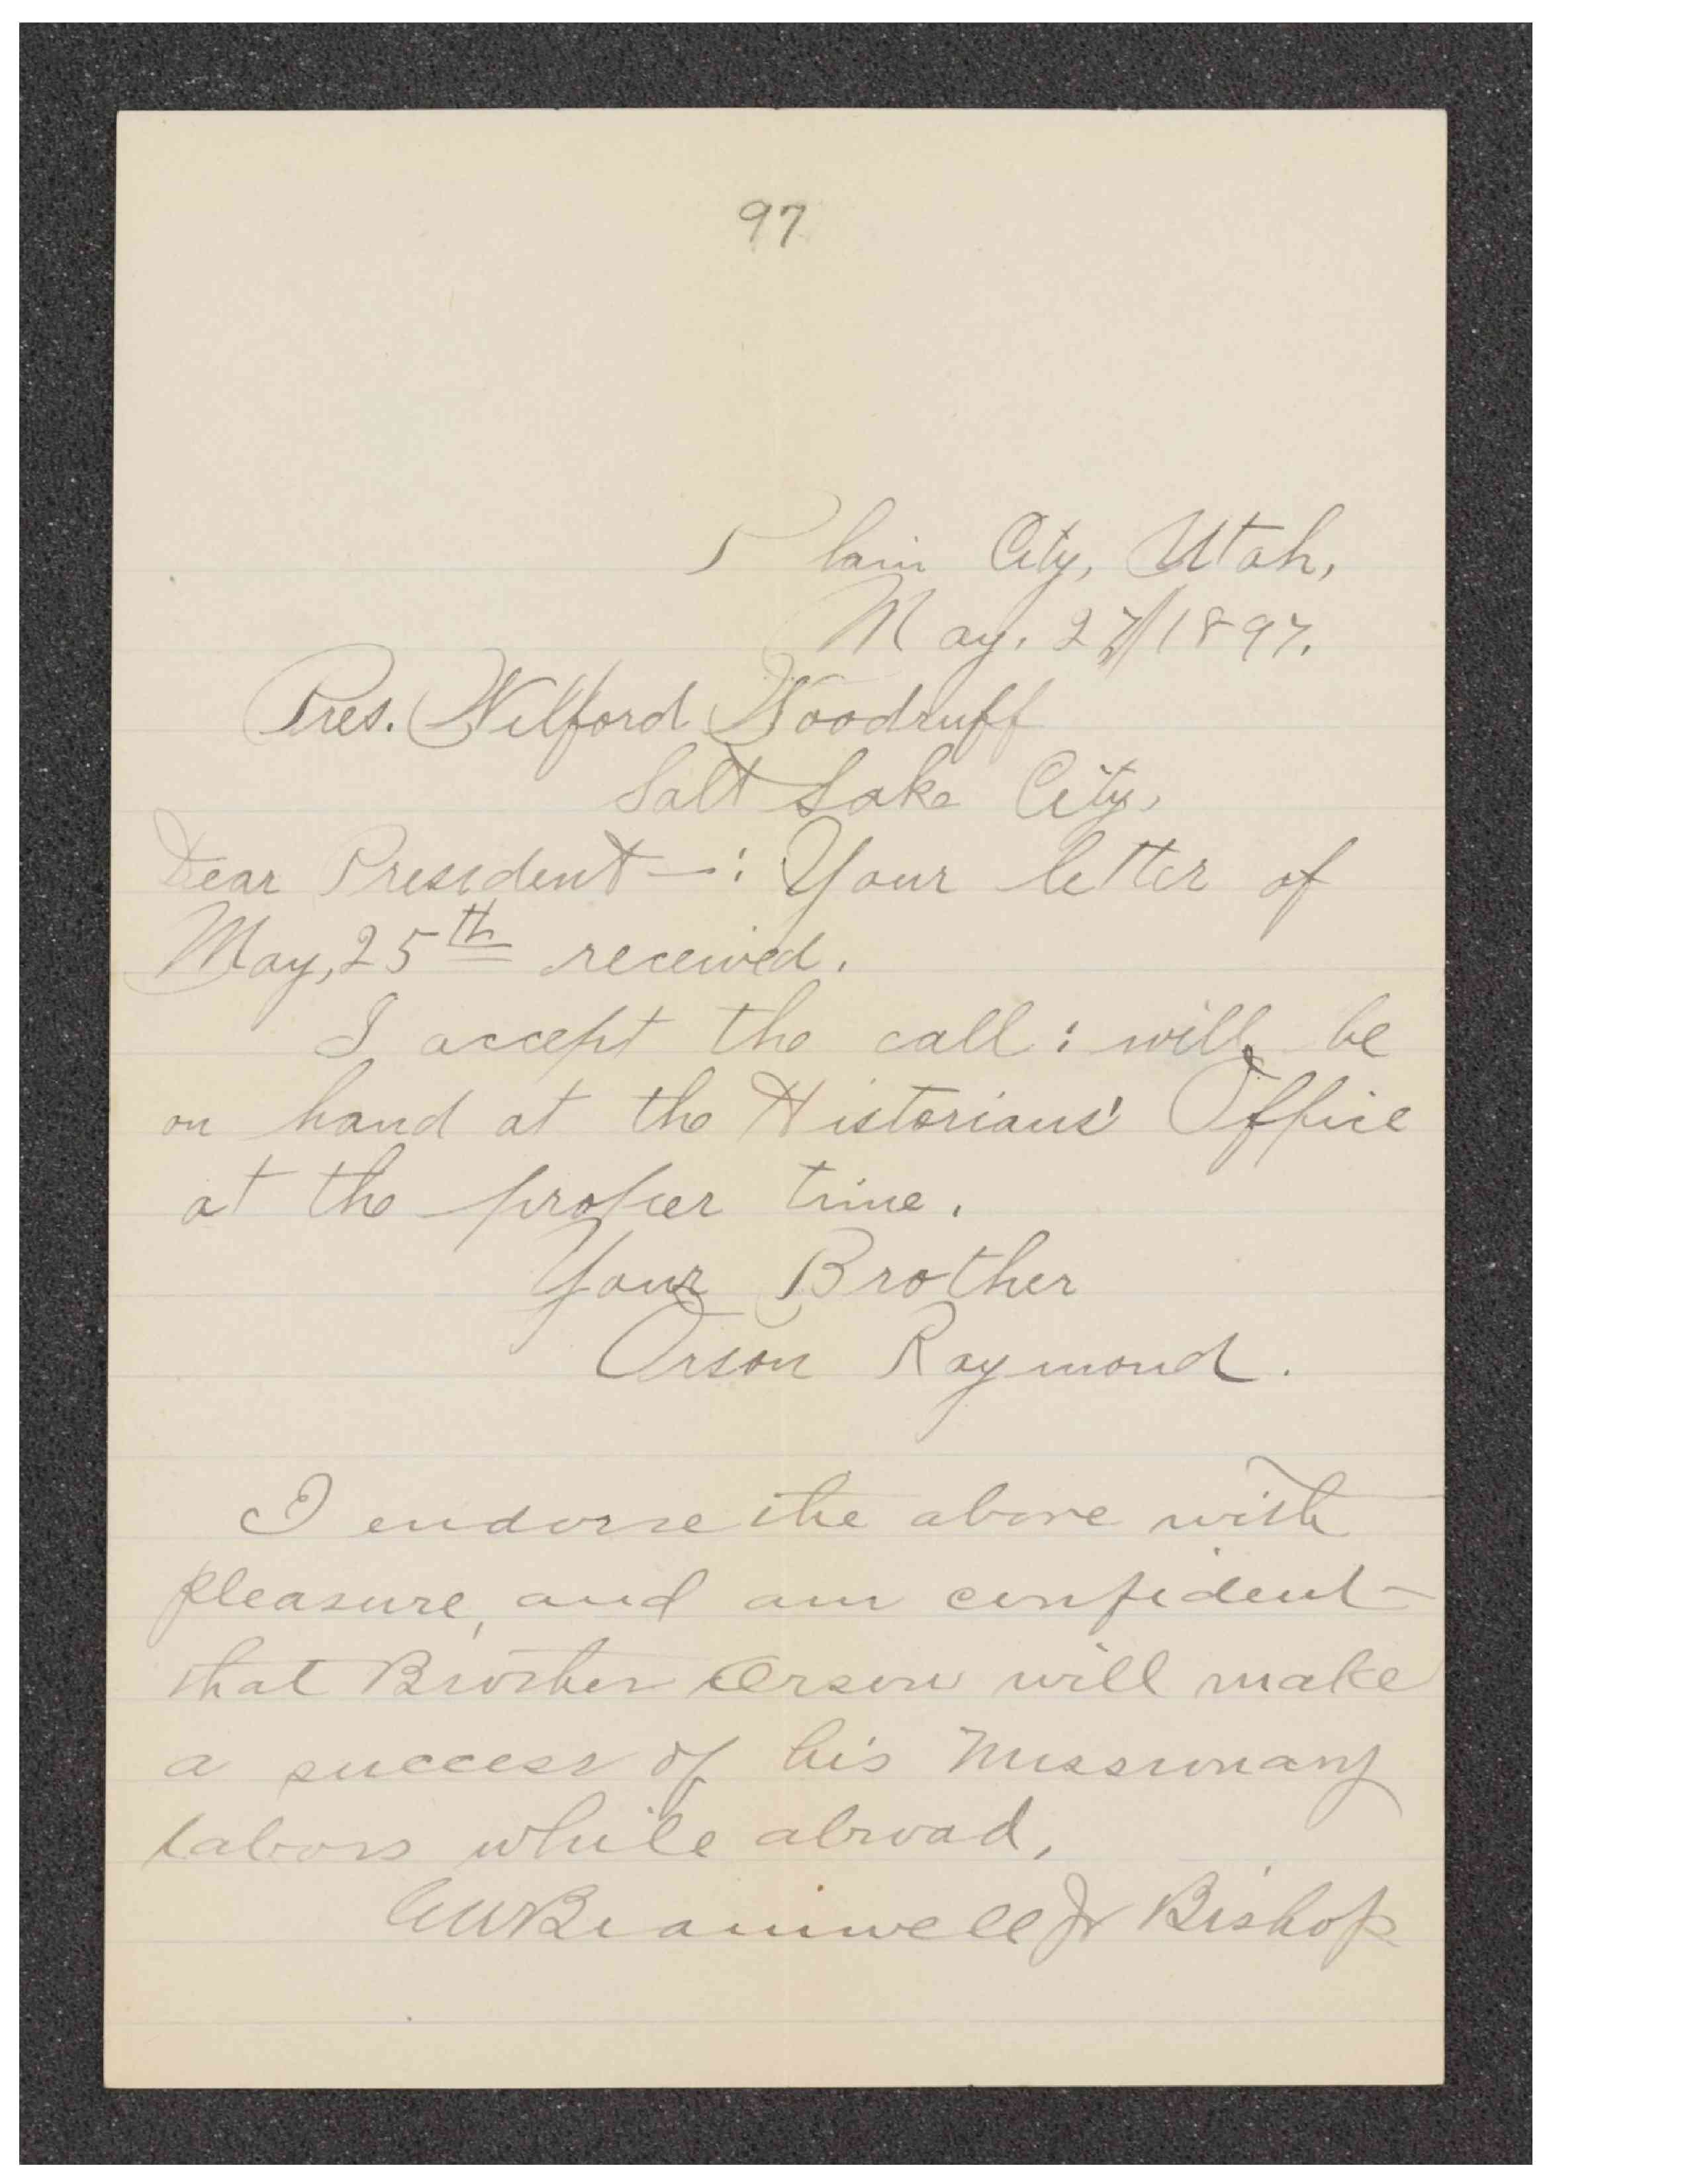 97
Plain City, Utah,
May. 27/1897.
Pres. Wilford Woodruff
Salt Lake City,
Dear President—: Your letter of
May, 25th received.
I accept the call: will be
on hand at the Historians' Office
at the proper time.
Your Brother
Orson Raymond.
I endorse the above with
pleasure, and am confident
that Brother Orson will make
a success of his Missionary
labors while abroad,
GWBramwell Jr Bishop